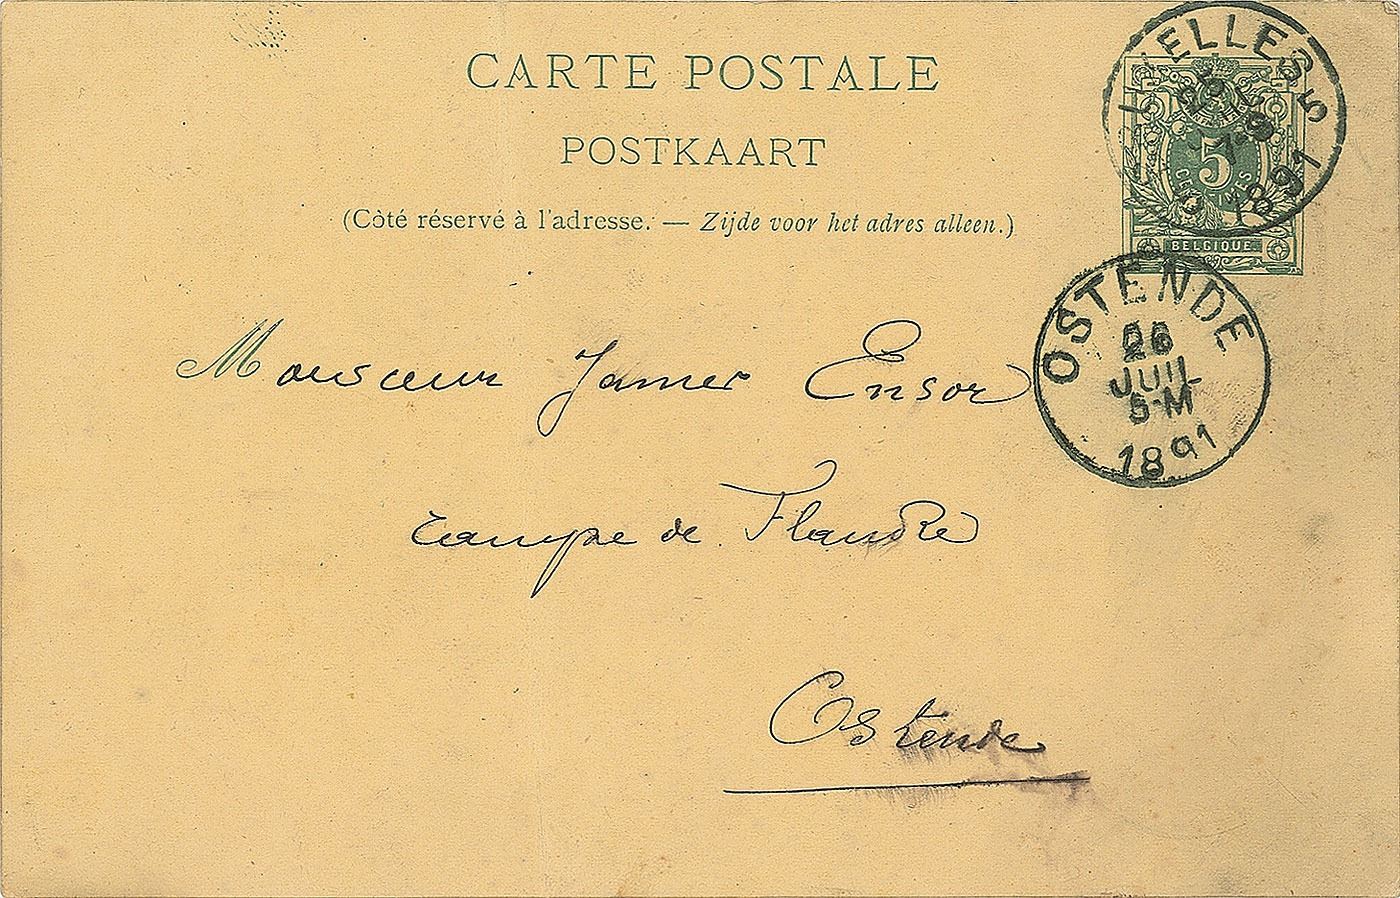 CARTE POSTALE
POSTKAART
(Côté réservé à l'adresse. — Zijde voor het adres alleen.)
5
CENTIMES
BELGIQUE
1891
OSTENDE
26
JUIL
5-M
1891
Monsieur James Ensor
rampe de Flandre
Ostende